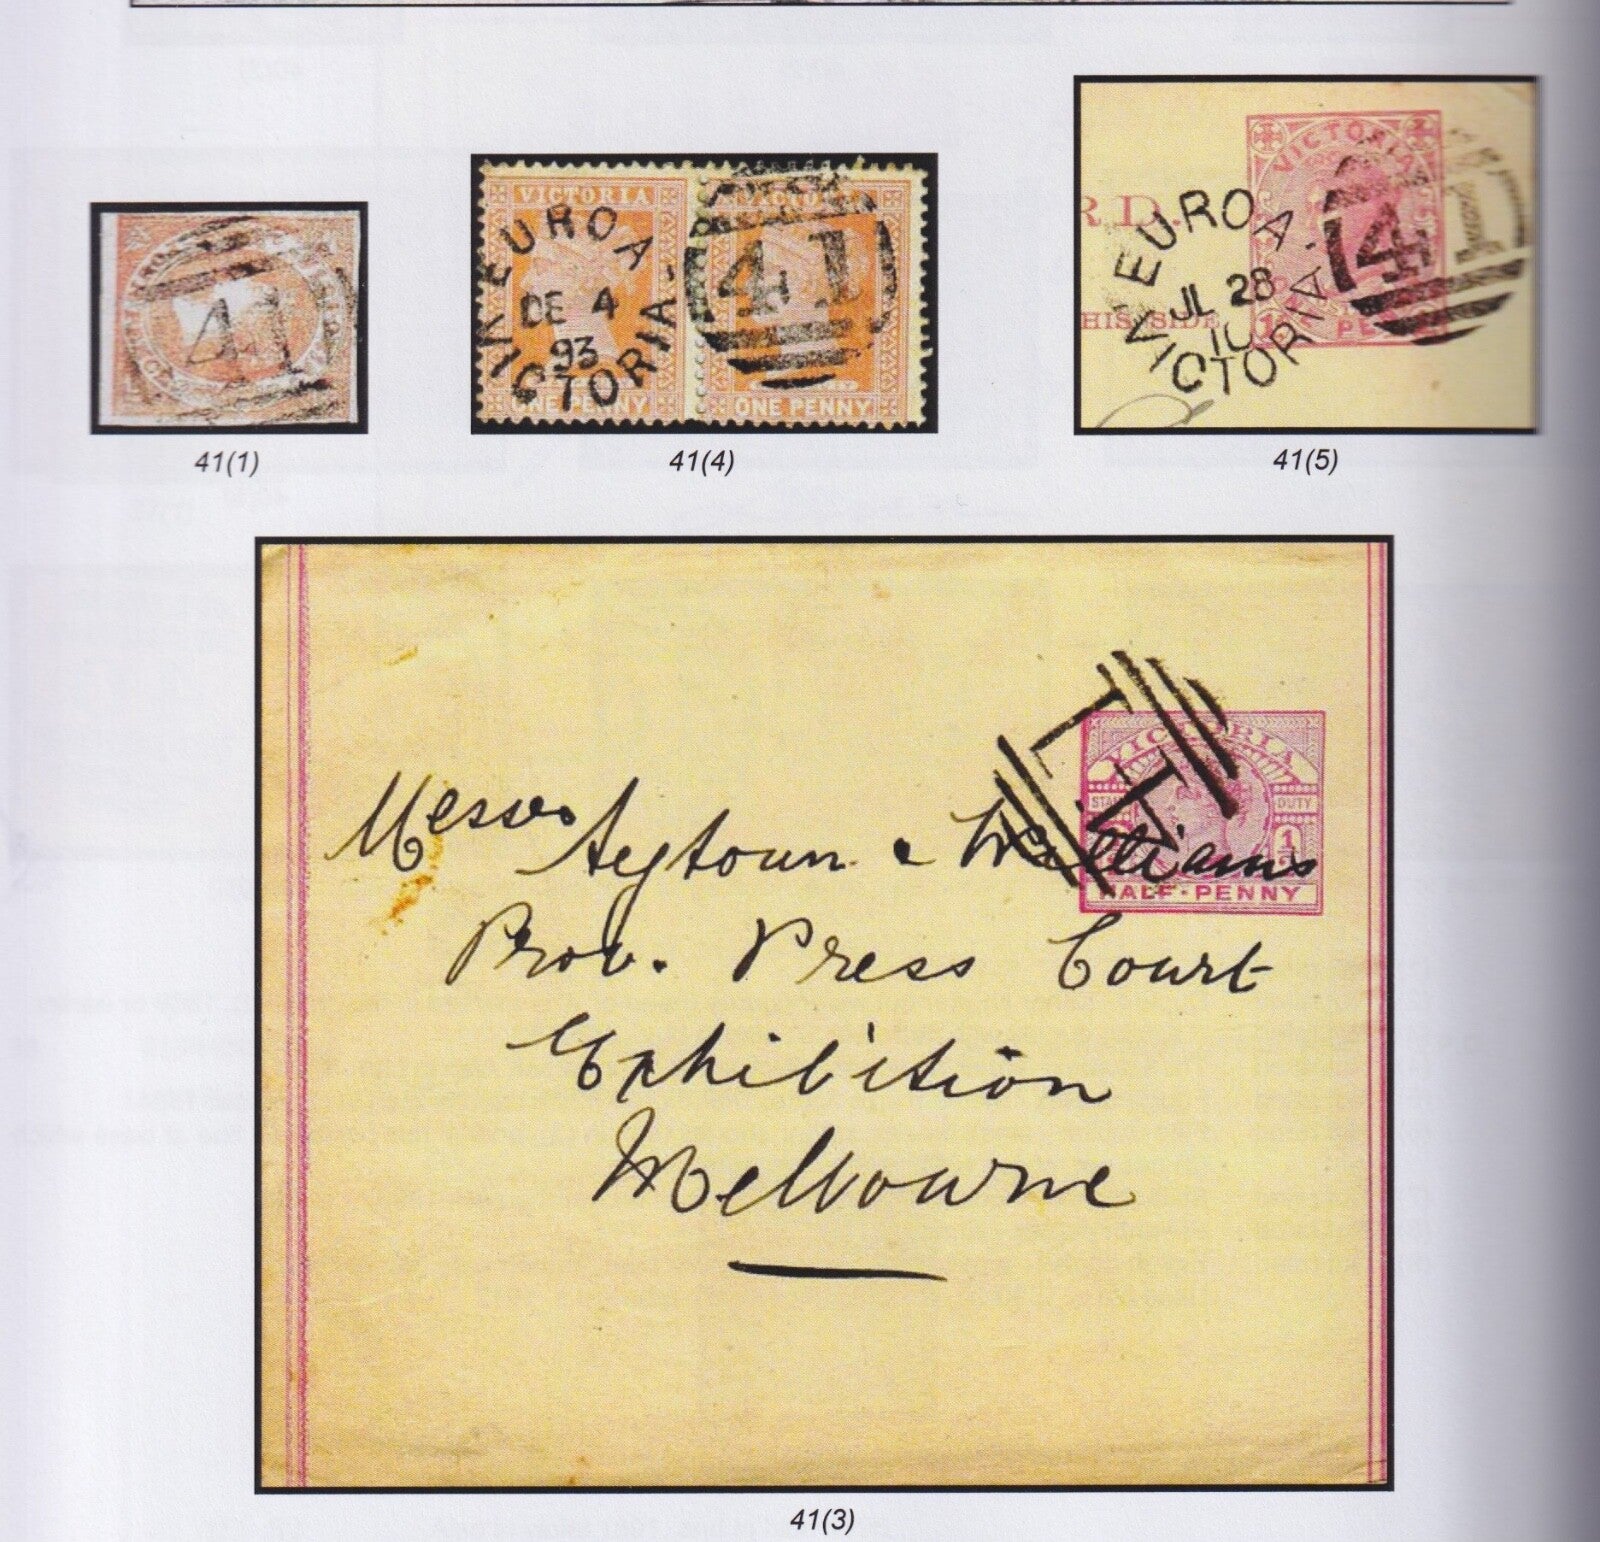 41
41(1)
VICTORIA
VICTORIA
EUROA
DE 4
93
VICTORIA
41
ONE PENNY
ONE PENNY
41(4)
VICTORIA
RD.
EUROA
JL 28
10
VICTORIA
HIS SIDE
PE
41
41(5)
VICTORIA
STAMP DUTY
1/2
HALF-PENNY
41
Messrs Aytoun & Williams
Prov. Press Court
Exhibition
Melbourne
41(3)